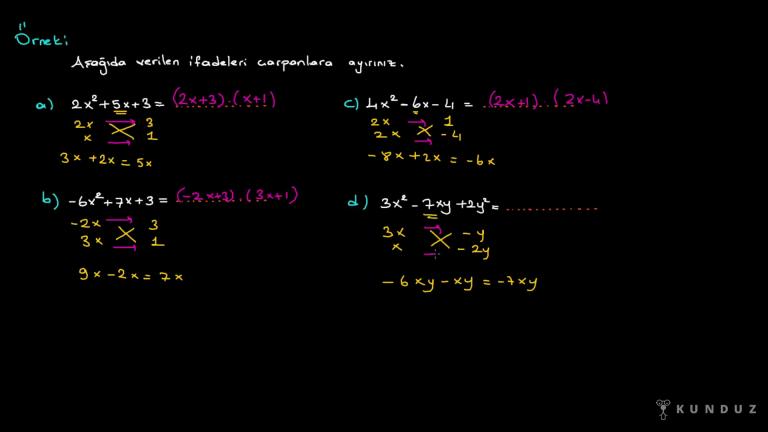 Örnek:
Aşağıda verilen ifadeleri çarpanlara ayırınız.
a) 2x² + 5x + 3 = (2x+3).(x+1)
2x 3
x 1
3x + 2x = 5x
b) -6x² + 7x + 3 = (-2x+3).(3x+1)
-2x 3
3x 1
9x - 2x = 7x
c) 4x² - 6x - 4 = (2x+1).(2x-4)
2x 1
2x -4
-8x + 2x = -6x
d) 3x² - 7xy + 2y² = ..............
3x -y
x -2y
-6xy - xy = -7xy
KUNDUZ